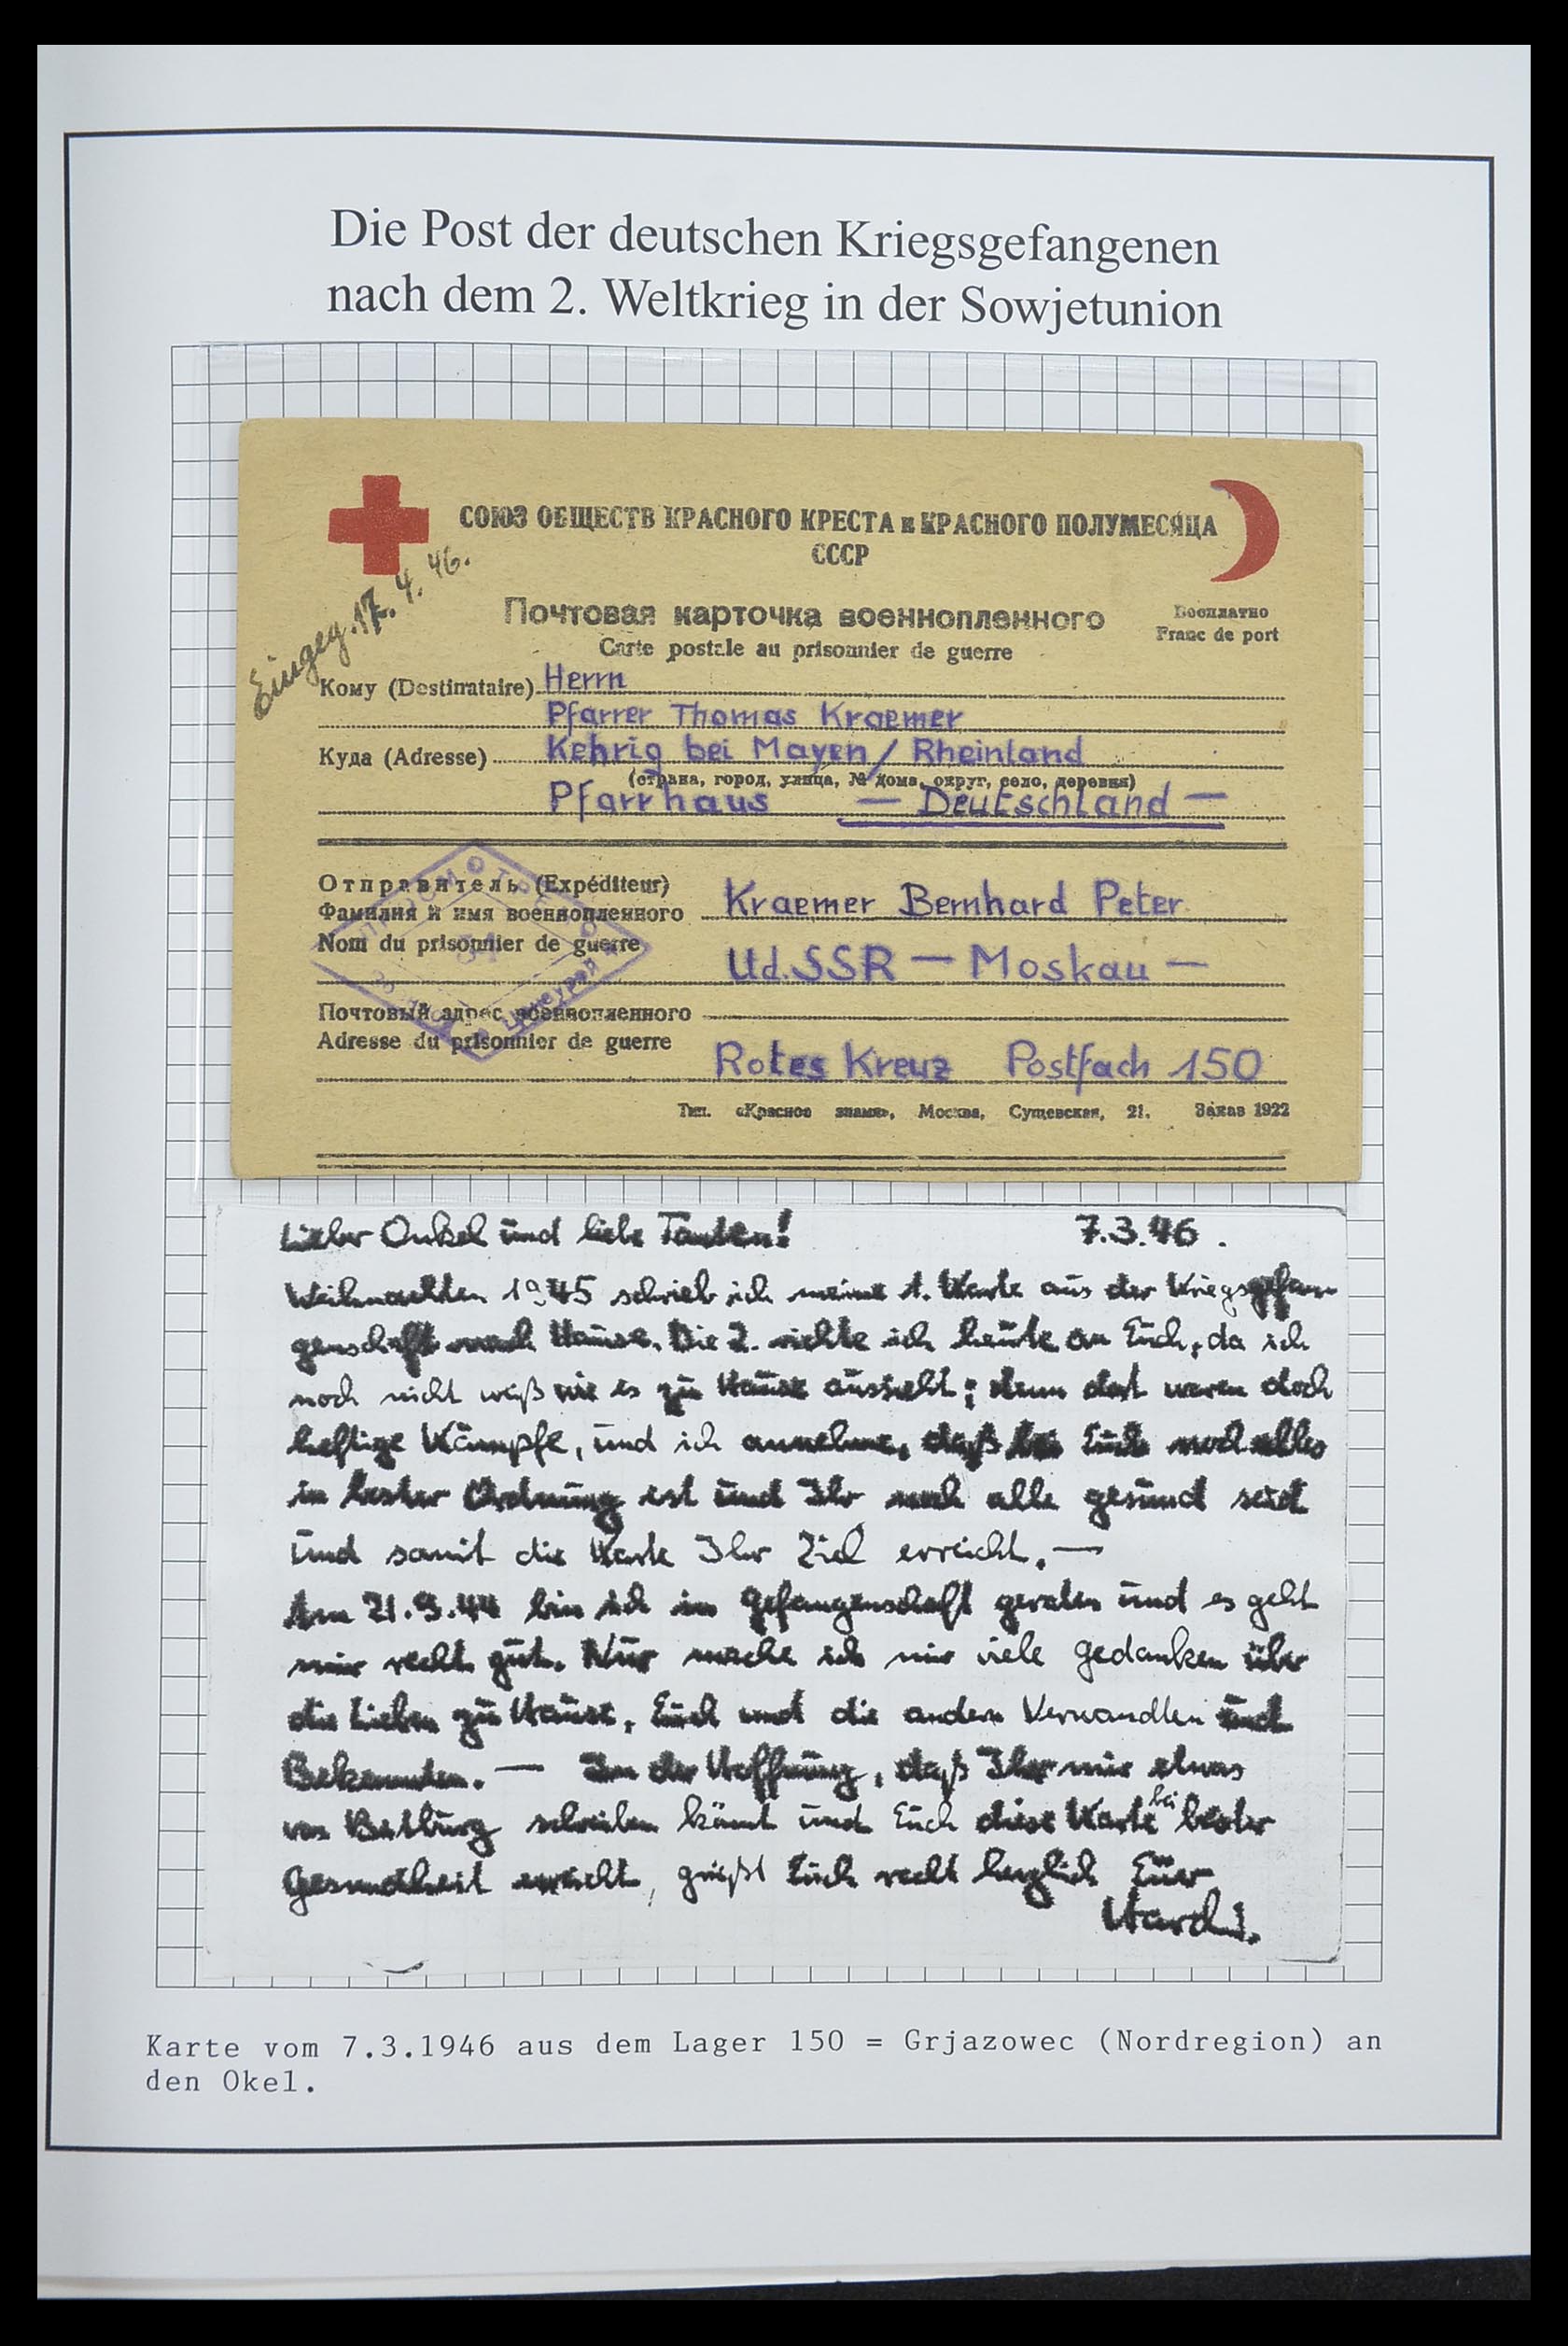 Die Post der deutschen Kriegsgefangenen
nach dem 2. Weltkrieg in der Sowjetunion
СОЮЗ ОБЩЕСТВ КРАСНОГО КРЕСТА и КРАСНОГО ПОЛУМЕСЯЦА
СССР
Eingeg. 17. 4. 46.
Почтовая карточка военнопленного
Бесплатно
Carte postale au prisonnier de guerre
Franc de port
Кому (Destinataire) Herrn
Pfarrer Thomas Kraemer
Куда (Adresse) Kehrig bei Mayen / Rheinland
(страна, город, улица, № дома, округ, село, деревня)
Pfarrhaus — Deutschland —
Отправитель (Expéditeur)
Фамилия и имя военнопленного Kraemer Bernhard Peter
Nom du prisonnier de guerre
Ud.SSR — Moskau —
Почтовый адрес военнопленного
Adresse du prisonnier de guerre
Rotes Kreuz Postfach 150
Тип. «Красное знамя», Москва, Сущевская, 21. Заказ 1922
Lieber Onkel und liebe Tanten! 7.3.46.
Weihnachten 1945 schrieb ich meine 1. Karte aus der Kriegsgefan
genschaft nach Hause. Die 2. richte ich heute an Euch, da ich
noch nicht weiß wie es zu Hause aussieht; denn dort waren doch
heftige Kämpfe, und ich annehme, daß bei Euch noch alles
in bester Ordnung ist und Ihr noch alle gesund seid
und somit die Karte Ihr Ziel erreicht. —
Am 21.9.44 bin ich in Gefangenschaft geraten und es geht
mir recht gut. Nur mache ich mir viele Gedanken über
die Lieben zu Hause, Euch und die andern Verwandten und
Bekannten. — In der Hoffnung, daß Ihr mir etwas
von schreiben könnt und Euch diese Karte bei bester
Gesundheit erreicht, grüßt Euch recht herzlich Euer
Karte vom 7.3.1946 aus dem Lager 150 = Grjazowec (Nordregion) an
den Okel.